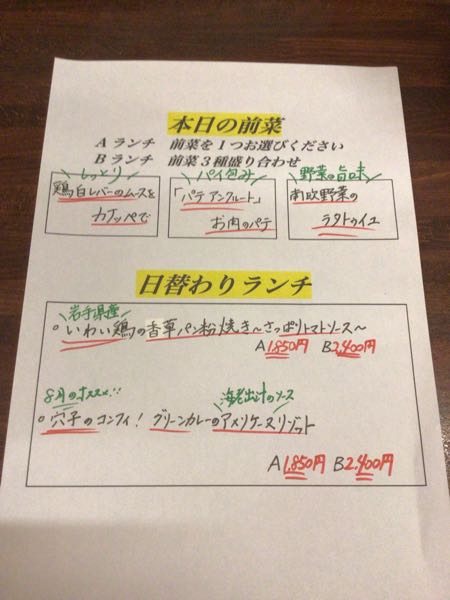 本日の前菜
A ランチ 前菜を1つお選びください
B ランチ 前菜3種盛り合わせ
しっとり
鶏白レバーのムースを
カナッペで
パイ包み
「パテアンクルート」
お肉のパテ
野菜の旨味
南欧野菜の
ラタトゥイユ
日替わりランチ
岩手県産
○いわい鶏の香草パン粉焼き～さっぱりトマトソース～
A1,850円 B2,400円
8月のオススメ
海老出汁のソース
○穴子のコンフィ! グリーンカレーのアメリケーヌリゾット
A1,850円 B2,400円